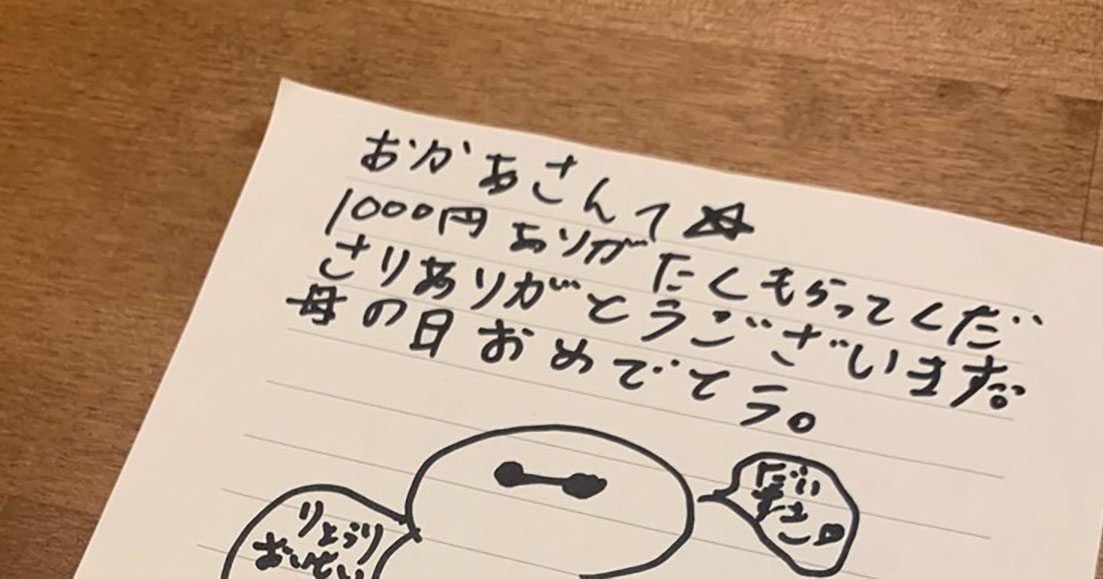 おかあさんて☆
1000円ありがたくもらってくだ
さりありがとうございます。
母の日おめでとう。
だい
すき
りょうり
おいしい